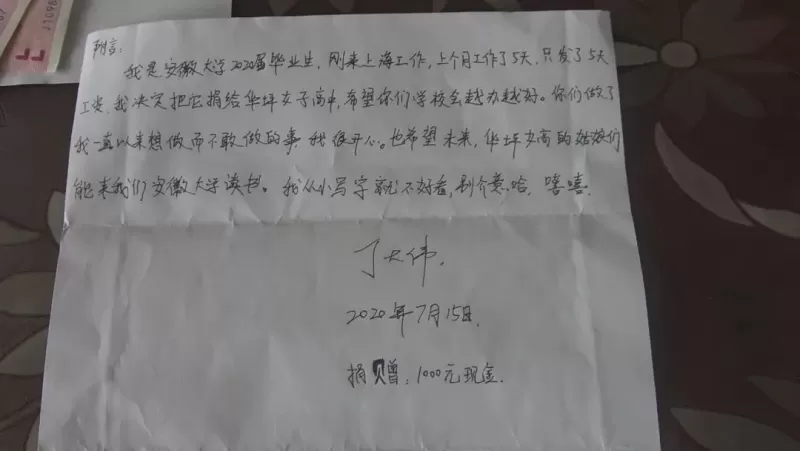 J1098
附言:
我是安徽大学2020届毕业生，刚来上海工作，上个月工作了5天，只发了5天
工资，我决定把它捐给华坪女子高中，希望你们学校会越办越好。你们做了
我一直以来想做而不敢做的事，我很开心。也希望未来，华坪女高的姑娘们
能来我们安徽大学读书。我从小写字就不好看，别介意哈，嘻嘻.
丁大伟.
2020年7月15日.
捐赠：1000元现金.